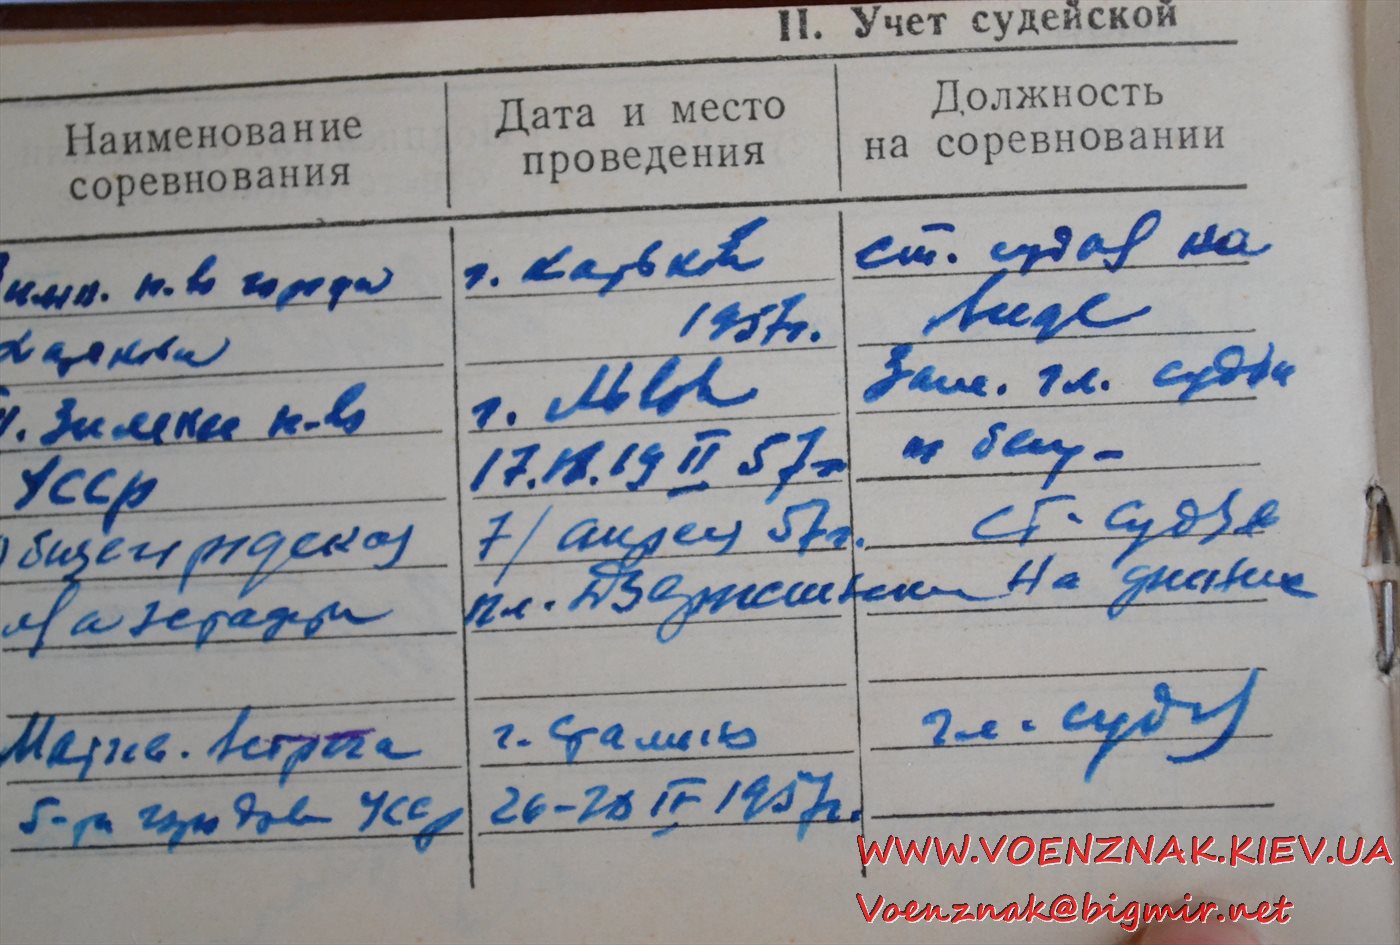 II. Учет судейской
Наименование соревнования
Дата и место проведения
Должность на соревновании
п-во города
г. Харьков
ст. судья на
Харькова
1957г.
виде
Зимнее п-во
г. Львов
Зам. гл. судьи
УССР
17.18.19 II 57г
по бегу
7/ апреля 57г.
ст. судья
эстафета
пл. Дзержинского
на финише
Матчев. встреча
г. Сталино
гл. судья
5-ти городов УССР
1957г.
WWW.VOENZNAK.KIEV.UA
Voenznak@bigmir.net